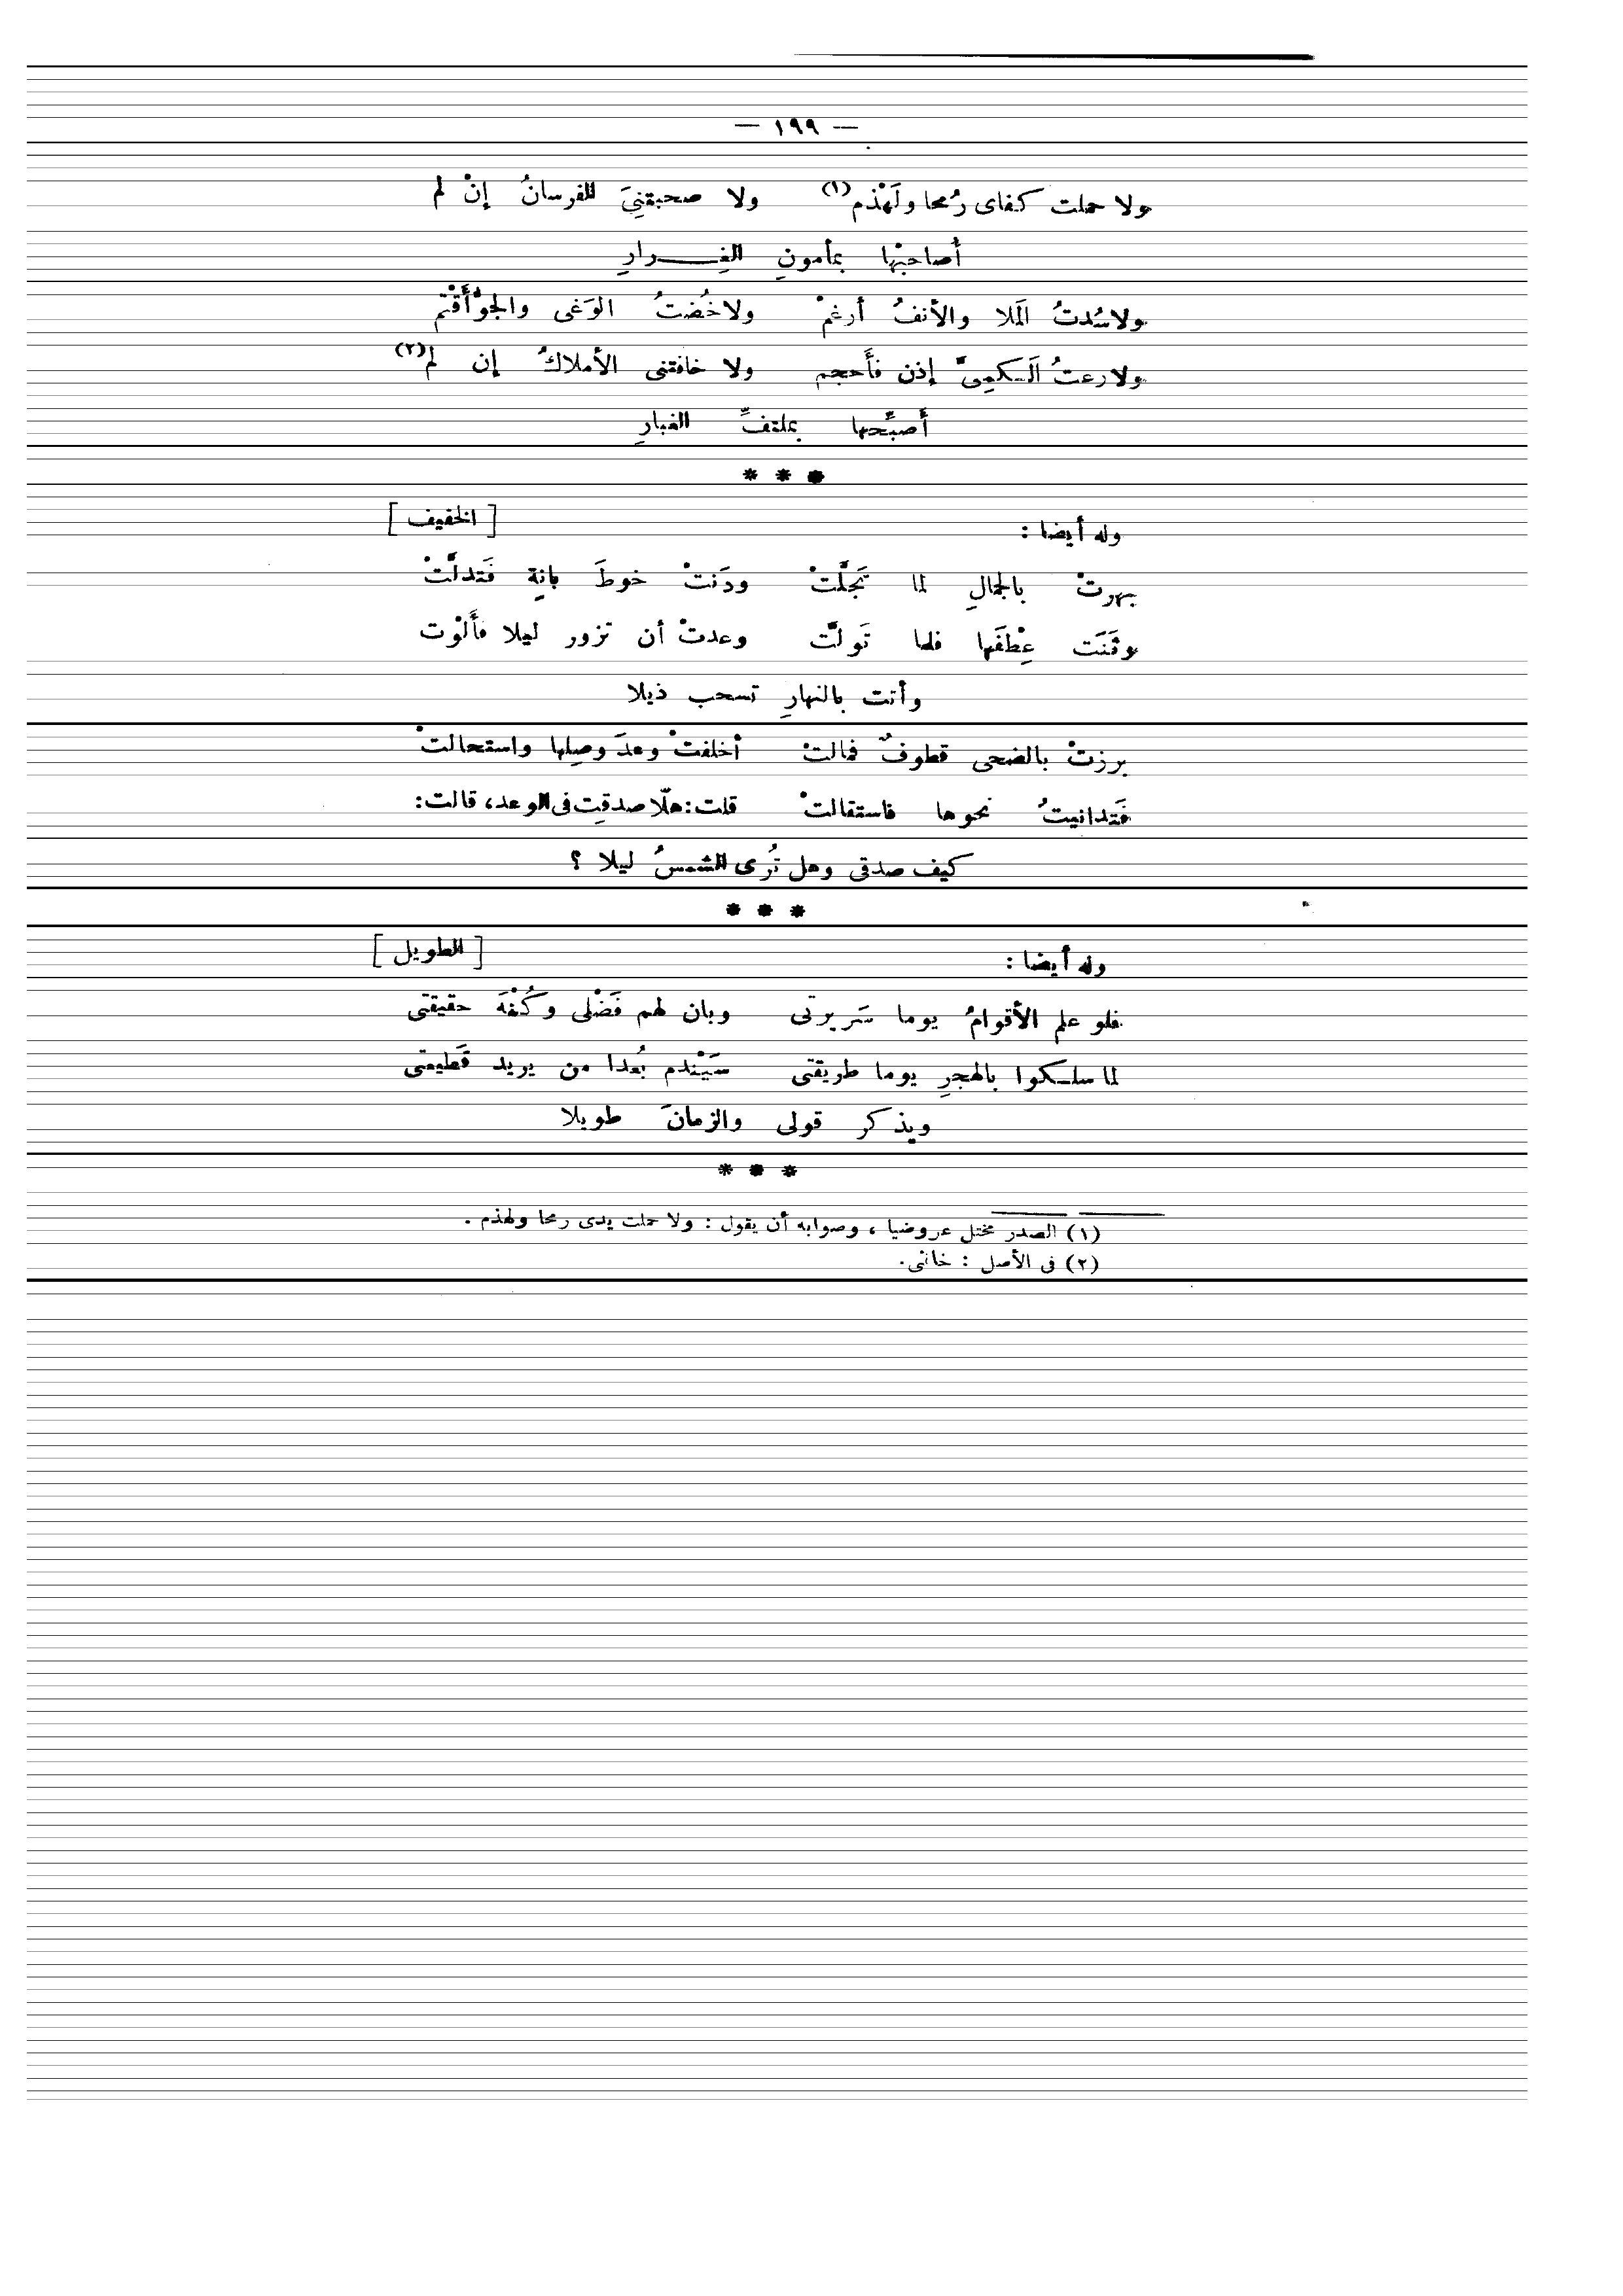 — ١٩٩ —
ولا حملت كفاى رُمحا ولَهْذم(١) ولا صحبتنِىَ الفرسانُ إنْ لم
أصاحبْها بمأمونِ الغِـــرارِ
ولا سُدتُ المَلا والأنفُ أرغمْ ولا خُضتُ الوَغى والجوُّ أَقْتم
ولا رعتُ الكمِىَّ إذن فأَحجم ولا خافتنى الأملاكُ إن لم(٢)
أُصبِّحها بملتفِّ الغبارِ
* * *
وله أيضا : [ الخفيف ]
بهرتْ بالجمالِ لما تَجلَّتْ ودَنتْ خوطَ بانةٍ فَتدلَّتْ
وثَنَت عِطْفَها فلما تَولَّت وعدتْ أن تزور ليلا فأَلْوت
وأتت بالنهارِ تسحب ذيلا
برزتْ بالضحى قطوفٌ فمالتْ أخلفتْ وعدَ وصلِها واستحالتْ
فَتدانيتُ نحوها فاستقالتْ قلت: هلّا صدقتِ فى الوعد، قالت:
كيف صدقى وهل تُرى الشمسُ ليلا ؟
* * *
وله أيضا : [ الطويل ]
فلو علم الأقوامُ يوما سَريرتى وبان لهم فَضْلى وكُنْهَ حقيقتى
لما سلكوا بالهجرِ يوما طريقتى سَيَنْدم بُعدا من يريد قَطيعتى
ويذكر قولى والزمانَ طويلا
* * *
(١) الصدر مختل عروضيا ، وصوابه أن يقول : ولا حملت يدى رمحا ولهذم .
(٢) فى الأصل : خانى.